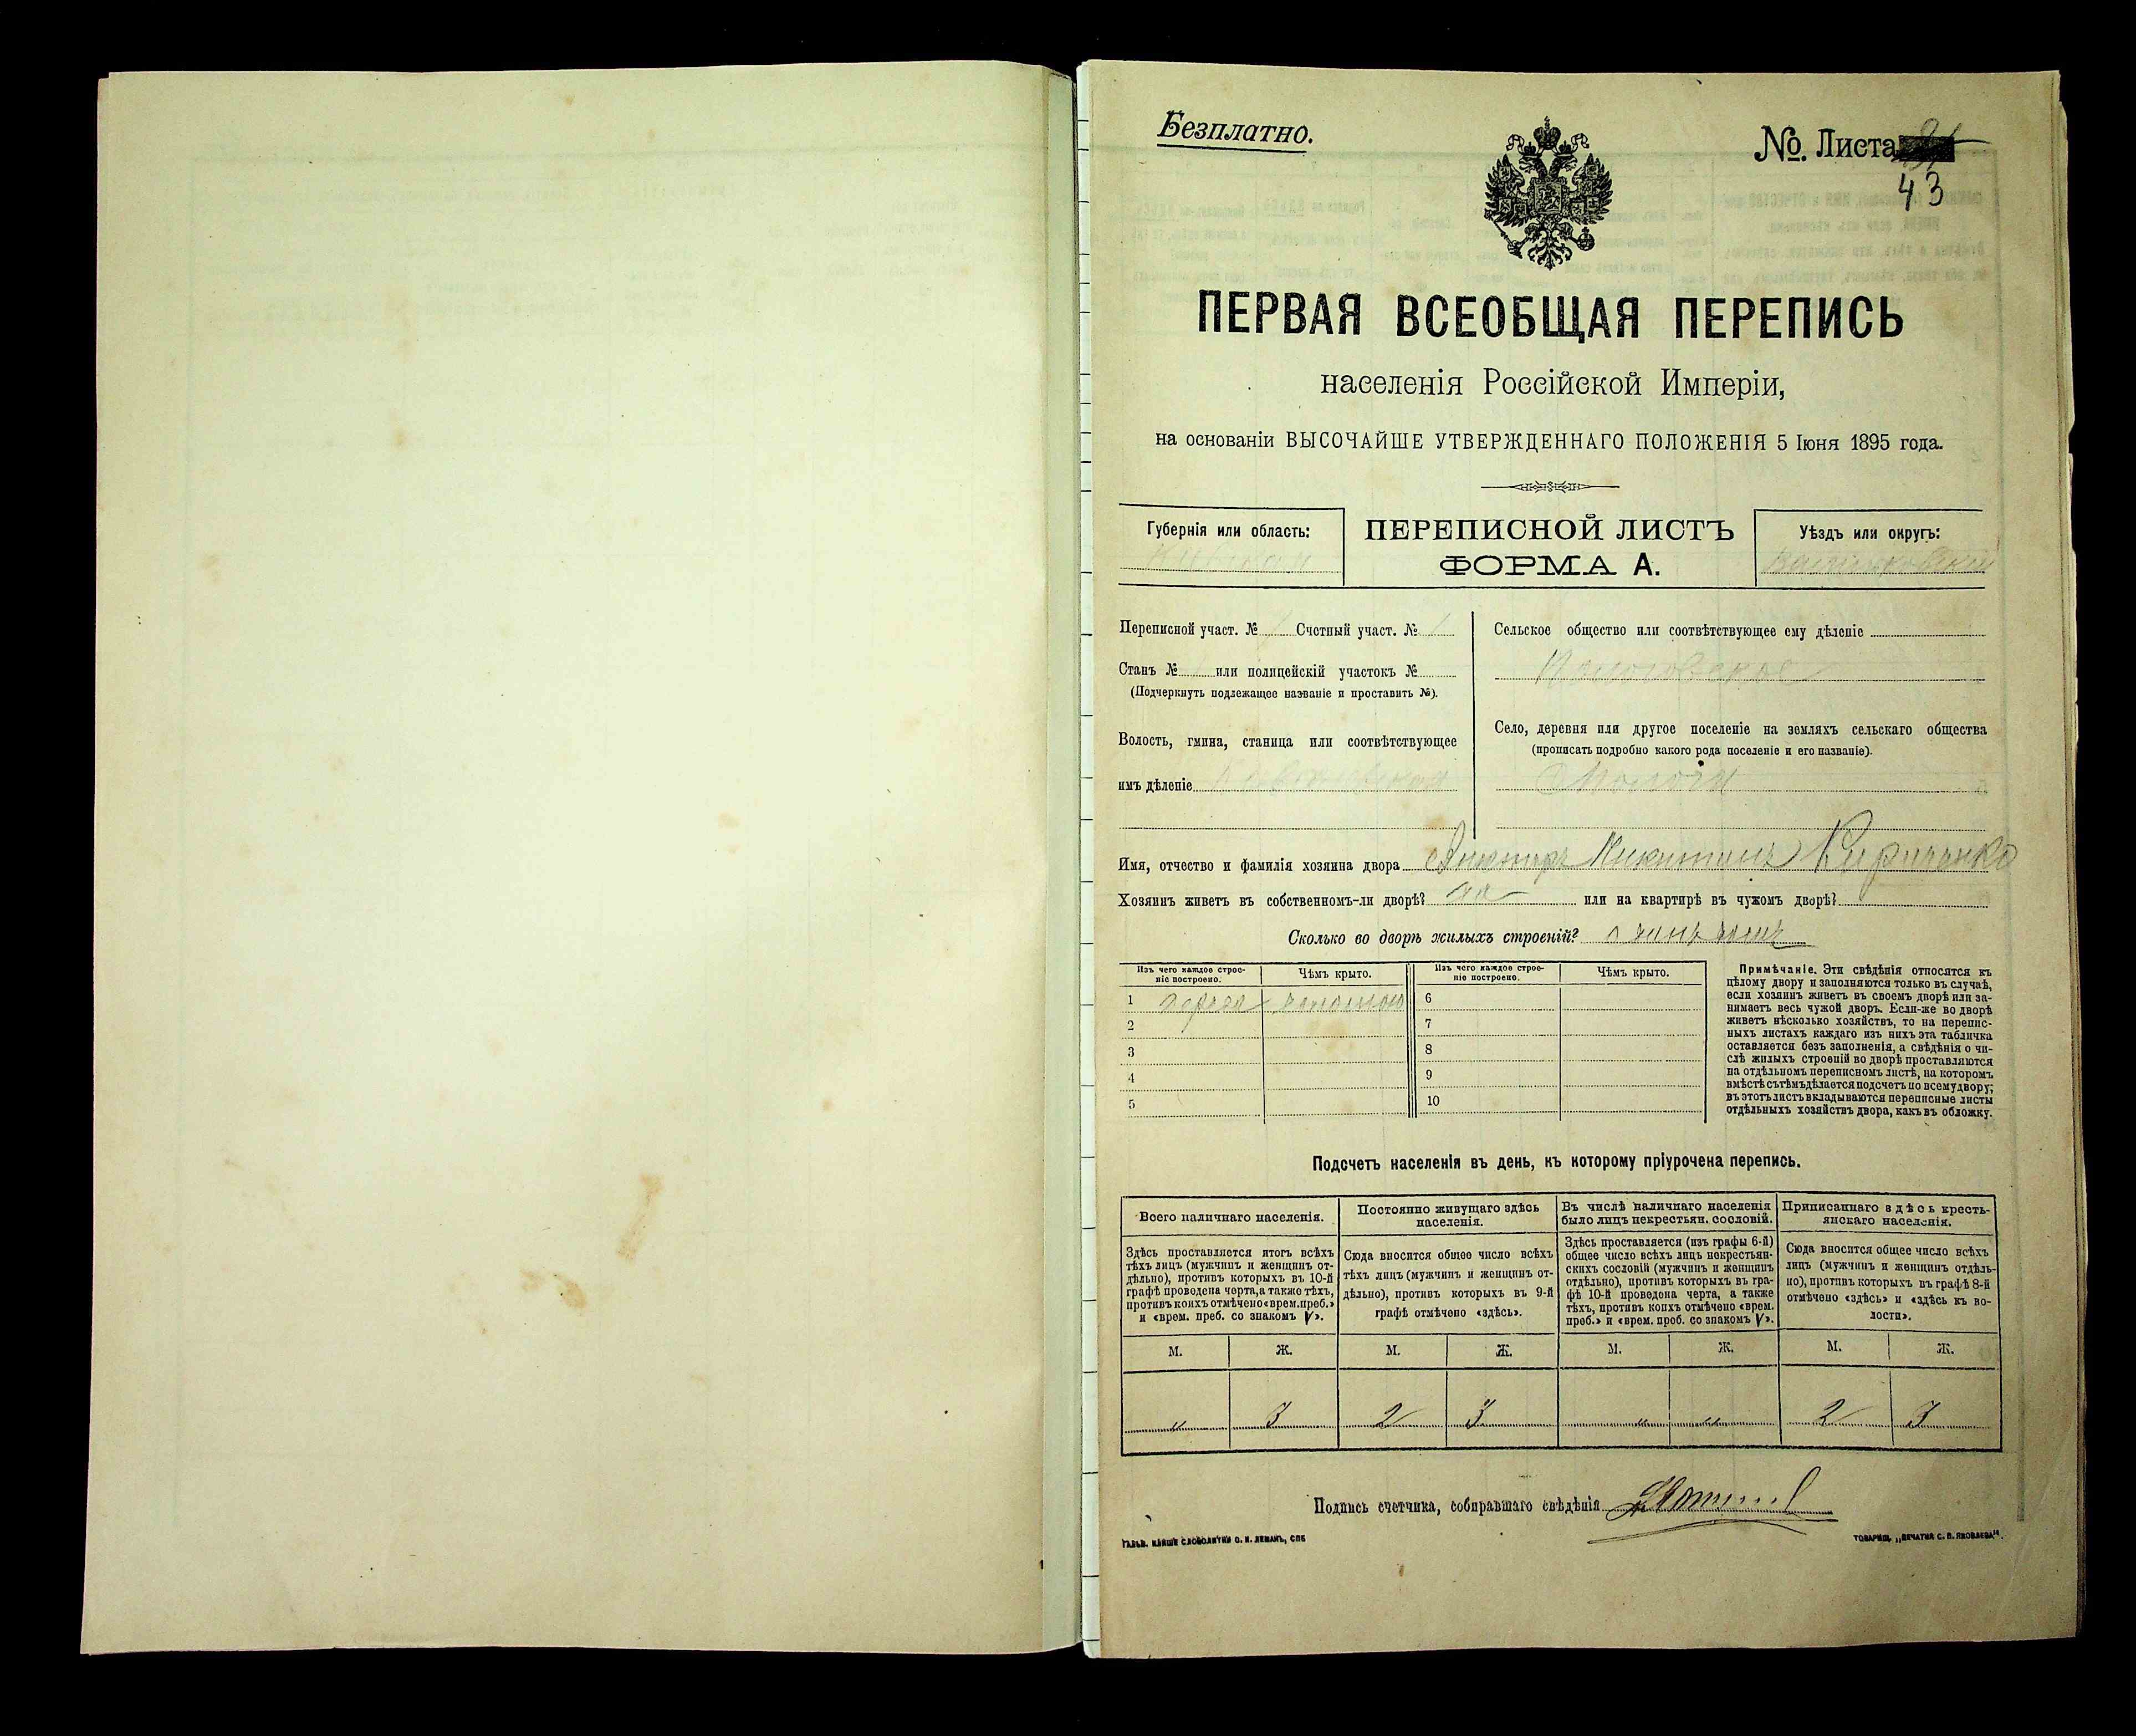 Безплатно.
№. Листа
43
ПЕРВАЯ ВСЕОБЩАЯ ПЕРЕПИСЬ
населенія Россійской Имперіи,
на основаніи ВЫСОЧАЙШЕ УТВЕРЖДЕННАГО ПОЛОЖЕНІЯ 5 Іюня 1895 года.
Губернія или область:
ПЕРЕПИСНОЙ ЛИСТЪ
ФОРМА А.
Уѣздъ или округъ:
Переписной участ. № Счетный участ. № 1
Станъ № или полицейскій участокъ №
(Подчеркнуть подлежащее названіе и проставить №).
Волость, гмина, станица или соотвѣтствующее
имъ дѣленіе
Сельское общество или соотвѣтствующее ему дѣленіе
Село, деревня или другое поселеніе на земляхъ сельскаго общества
(прописать подробно какого рода поселеніе и его названіе).
Имя, отчество и фамилія хозяина двора Викторъ Никитинъ Кириченко
Хозяинъ живетъ въ собственномъ-ли дворѣ? да или на квартирѣ въ чужомъ дворѣ?
Сколько во дворѣ жилыхъ строеній? одинъ домъ
Изъ чего каждое строе-
ніе построено.
Чѣмъ крыто.
Изъ чего каждое строе-
ніе построено.
Чѣмъ крыто.
1 дерева соломою 6
2 7
3 8
4 9
5 10
Примѣчаніе. Эти свѣдѣнія относятся къ
цѣлому двору и заполняются только въ случаѣ,
если хозяинъ живетъ въ своемъ дворѣ или за-
нимаетъ весь чужой дворъ. Если-же во дворѣ
живетъ нѣсколько хозяйствъ, то на перепис-
ныхъ листахъ каждаго изъ нихъ эта табличка
оставляется безъ заполненія, а свѣдѣнія о чи-
слѣ жилыхъ строеній во дворѣ проставляются
на отдѣльномъ переписномъ листѣ, на которомъ
вмѣстѣ съ тѣмъ дѣлается подсчетъ по всему двору;
въ этотъ листъ вкладываются переписные листы
отдѣльныхъ хозяйствъ двора, какъ въ обложку.
Подсчетъ населенія въ день, къ которому пріурочена перепись.
Всего наличнаго населенія.
Здѣсь проставляется итогъ всѣхъ
тѣхъ лицъ (мужчинъ и женщинъ от-
дѣльно), противъ которыхъ въ 10-й
графѣ проведена черта, а также тѣхъ,
противъ коихъ отмѣчено «врем. преб.»
и «врем. преб. со знакомъ V».
Постоянно живущаго здѣсь
населенія.
Сюда вносится общее число всѣхъ
тѣхъ лицъ (мужчинъ и женщинъ от-
дѣльно), противъ которыхъ въ 9-й
графѣ отмѣчено «здѣсь».
Въ числѣ наличнаго населенія
было лицъ некрестьян. сословій.
Здѣсь проставляется (изъ графы 6-й)
общее число всѣхъ лицъ некрестьян-
скихъ сословій (мужчинъ и женщинъ
отдѣльно), противъ которыхъ въ гра-
фѣ 10-й проведена черта, а также
тѣхъ, противъ коихъ отмѣчено «врем.
преб.» и «врем. преб. со знакомъ V».
Приписаннаго здѣсь кресть-
янскаго населенія.
Сюда вносится общее число всѣхъ
лицъ (мужчинъ и женщинъ отдѣль-
но), противъ которыхъ въ графѣ 8-й
отмѣчено «здѣсь» и «здѣсь къ во-
лости».
М. Ж. М. Ж. М. Ж. М. Ж.
" 3 2 3 " " 2 3
Подпись счетчика, собиравшаго свѣдѣнія
ГАЛЬВ. КЛИШЕ СЛОВОЛИТНИ О. И. ЛЕМАНЪ, СПБ
ТОВАРИЩ. „ПЕЧАТНЯ С. П. ЯКОВЛЕВА".